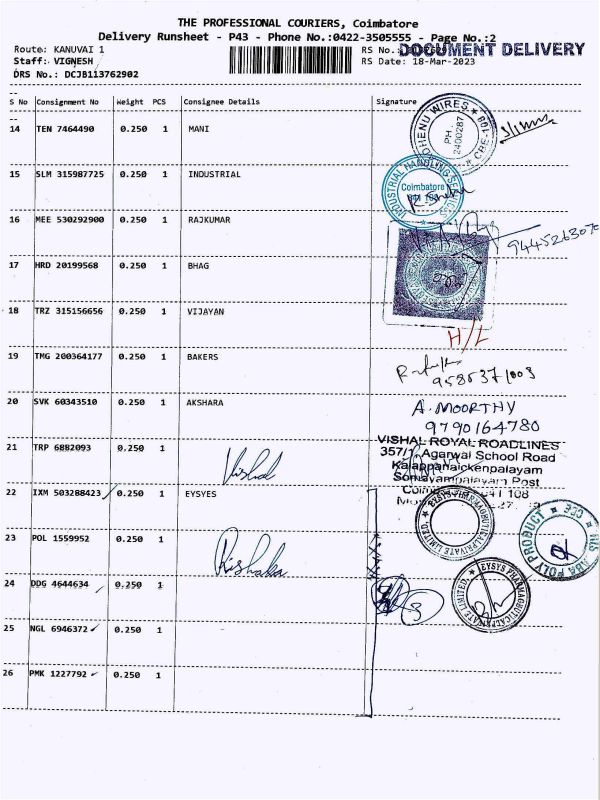 THE PROFESSIONAL COURIERS, Coimbatore
Delivery Runsheet - P43 - Phone No.:0422-3505555 - Page No.:2
Route: KANUVAI 1
RS No.:
DOCUMENT DELIVERY
Staff: VIGNESH
RS Date: 18-Mar-2023
DRS No.: DCJB113762902
S No Consignment No Weight PCS Consignee Details Signature
14 TEN 7464490 0.250 1 MANI
WIRES PH. 2400287 CBE-109
15 SLM 315987725 0.250 1 INDUSTRIAL
INDUSTRIAL HANDLING
Coimbatore
16 MEE 530292900 0.250 1 RAJKUMAR
17 HRD 20199568 0.250 1 BHAG
18 TRZ 315156656 0.250 1 VIJAYAN
H/L
19 TMG 200364177 0.250 1 BAKERS
20 SVK 60343510 0.250 1 AKSHARA
A. MOORTHY
9790164780
21 TRP 6882093 0.250 1
Vishal
VISHAL ROYAL ROADLINES
357/1, Agarwal School Road
Kalappanaickenpalayam
Somayampalayam Post
22 IXM 503288423 0.250 1 EYSYES
EYSYS PHARMACEUTICAL PRIVATE LIMITED.
23 POL 1559952 0.250 1
POLY PRODUCT
24 DDG 4644634 0.250 1
EYSYS PHARMACEUTICAL PRIVATE LIMITED.
25 NGL 6946372 0.250 1
26 PMK 1227792 0.250 1